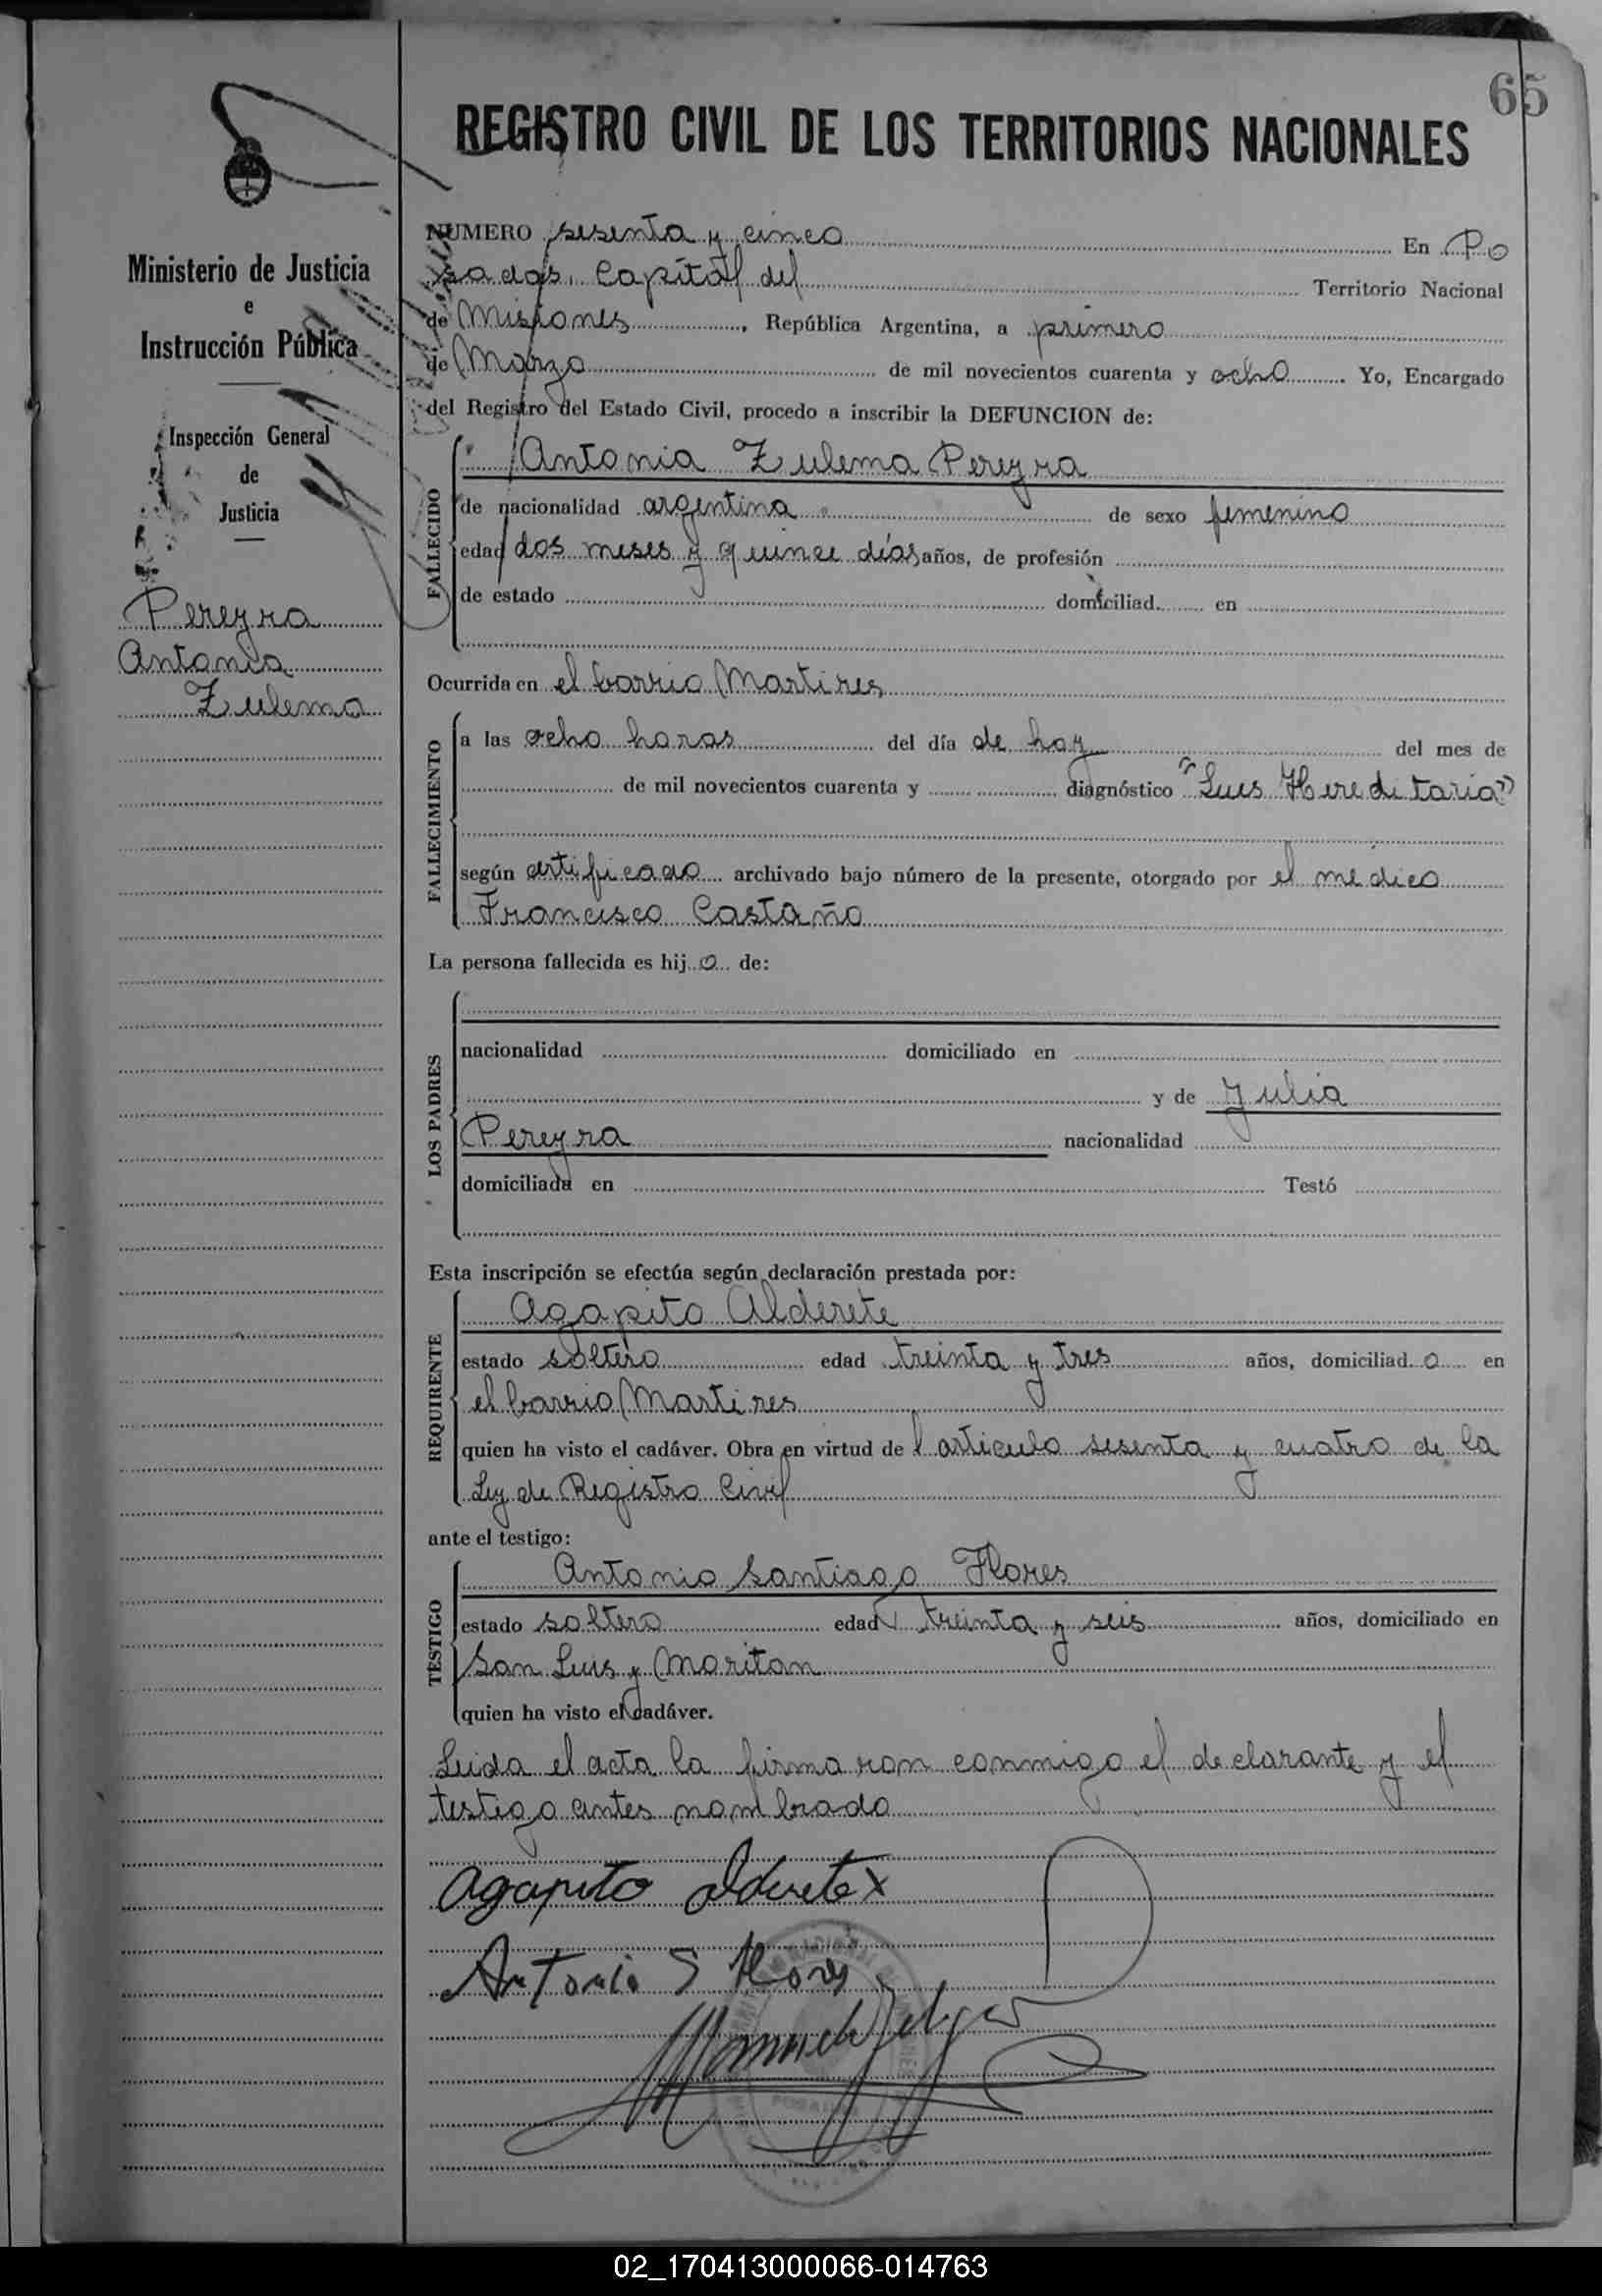 65
REGISTRO CIVIL DE LOS TERRITORIOS NACIONALES
Ministerio de Justicia
e
Instrucción Pública
Inspección General
de
Justicia
Pereyra
Antonia
Zulema
NUMERO sesenta y cinco En Po
sadas, Capital del Territorio Nacional
de Misiones, República Argentina, a primero
de Marzo de mil novecientos cuarenta y ocho. Yo, Encargado
del Registro del Estado Civil, procedo a inscribir la DEFUNCION de:
FALLECIDO
Antonia Zulema Pereyra
de nacionalidad argentina de sexo femenino
edad dos meses y quince días años, de profesión
de estado domiciliad en
Ocurrida en el barrio Martires
FALLECIMIENTO
a las ocho horas del día de hoy del mes de
de mil novecientos cuarenta y diagnóstico "Lues Hereditaria"
según certificado archivado bajo número de la presente, otorgado por el médico
Francisco Castaño
La persona fallecida es hij a de:
LOS PADRES
nacionalidad domiciliado en
y de Julia
Pereyra nacionalidad
domiciliada en Testó
Esta inscripción se efectúa según declaración prestada por:
REQUIRENTE
Agapito Alderete
estado soltero edad treinta y tres años, domiciliad o en
el barrio Martires
quien ha visto el cadáver. Obra en virtud de l articulo sesenta y cuatro de la
Ley de Registro Civil
ante el testigo:
TESTIGO
Antonio Santiago Flores
estado soltero edad treinta y seis años, domiciliado en
San Luis y Moritan
quien ha visto el cadáver.
Leida el acta la firmaron conmigo el declarante y el
testigo antes nombrado
Agapito alderete x
Antonio S Flores
02_170413000066-014763